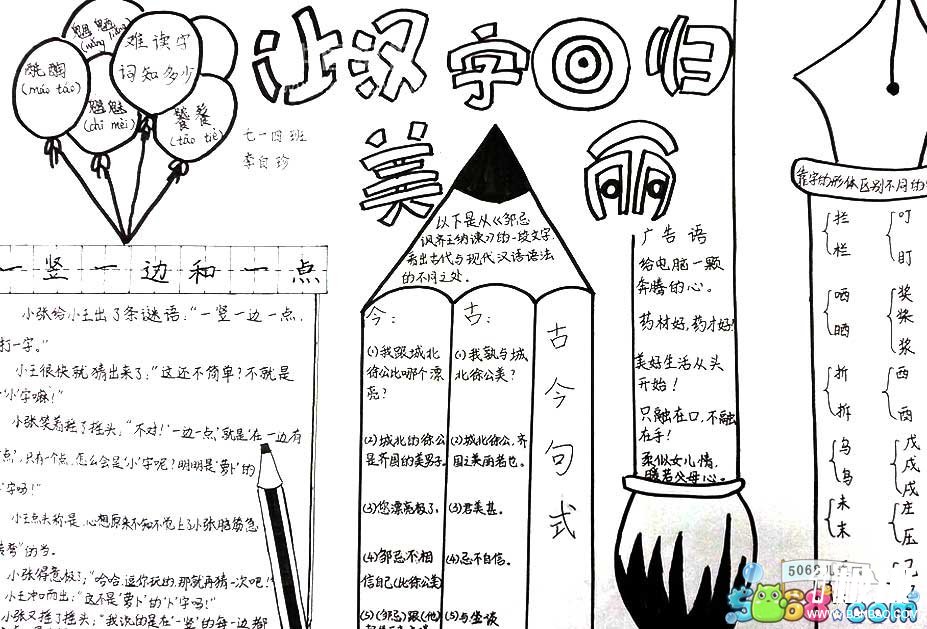 让汉字回归
美丽
魍魉
(wǎng liǎng)
酕醄
(máo táo)
难读字
词知多少
魑魅
(chī mèi)
饕餮
(tāo tiè)
七一四班
一竖一边和一点
小张给小王出了条谜语:“一竖一边一点,
打一字。”
小王很快就猜出来了:“这还不简单?不就是
‘小’字嘛!”
小张笑着摇了摇头,“不对!‘一边一点’就是‘在一边有
点’,只有一个点,怎么会是‘小’字呢?明明是‘萝卜’的
字吗!”
小王点头称是,心想原来不知不觉上了小张脑筋急
转弯”的当。
小张得意极了,“哈哈,逗你玩的,那就再猜一次吧!”
小王冲口而出:“这不是‘萝卜’的‘卜’字吗!”
小张又摇了摇头:“我说的是在‘一竖’的每一边都
以下是从《邹忌
讽齐王纳谏》的一段文字,
看出古代与现代汉语语法
的不同之处。
今:
(1)我跟城北
徐公比哪个漂
亮?
(2)城北的徐公
是齐国的美男子
(3)您漂亮极了,
(4)邹忌不相
信自己(比徐公美)
(5)(邹忌)跟(他)
古:
(1)我孰与城
北徐公美?
(2)城北徐公,齐
国之美丽者也。
(3)君美甚。
(4)忌不自信。
(5)与坐谈
古今句式
广告语
给电脑一颗
奔腾的心。
药材好,药才好!
美好生活从头
开始!
只融在口,不融
在手!
柔似女儿情,
暖若父母心。
靠字的形体区别不同的
拦
栏
叮
盯
哂
晒
奖
桨
浆
折
拆
西
乌
鸟
戊
戌
戍
未
末
庄
压
己